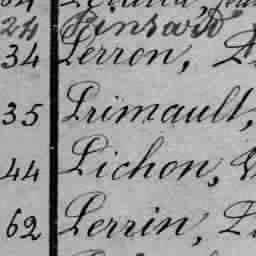 24 Pinsard
34 Perron,
35 Primault,
44 Pichon,
62 Perrin,